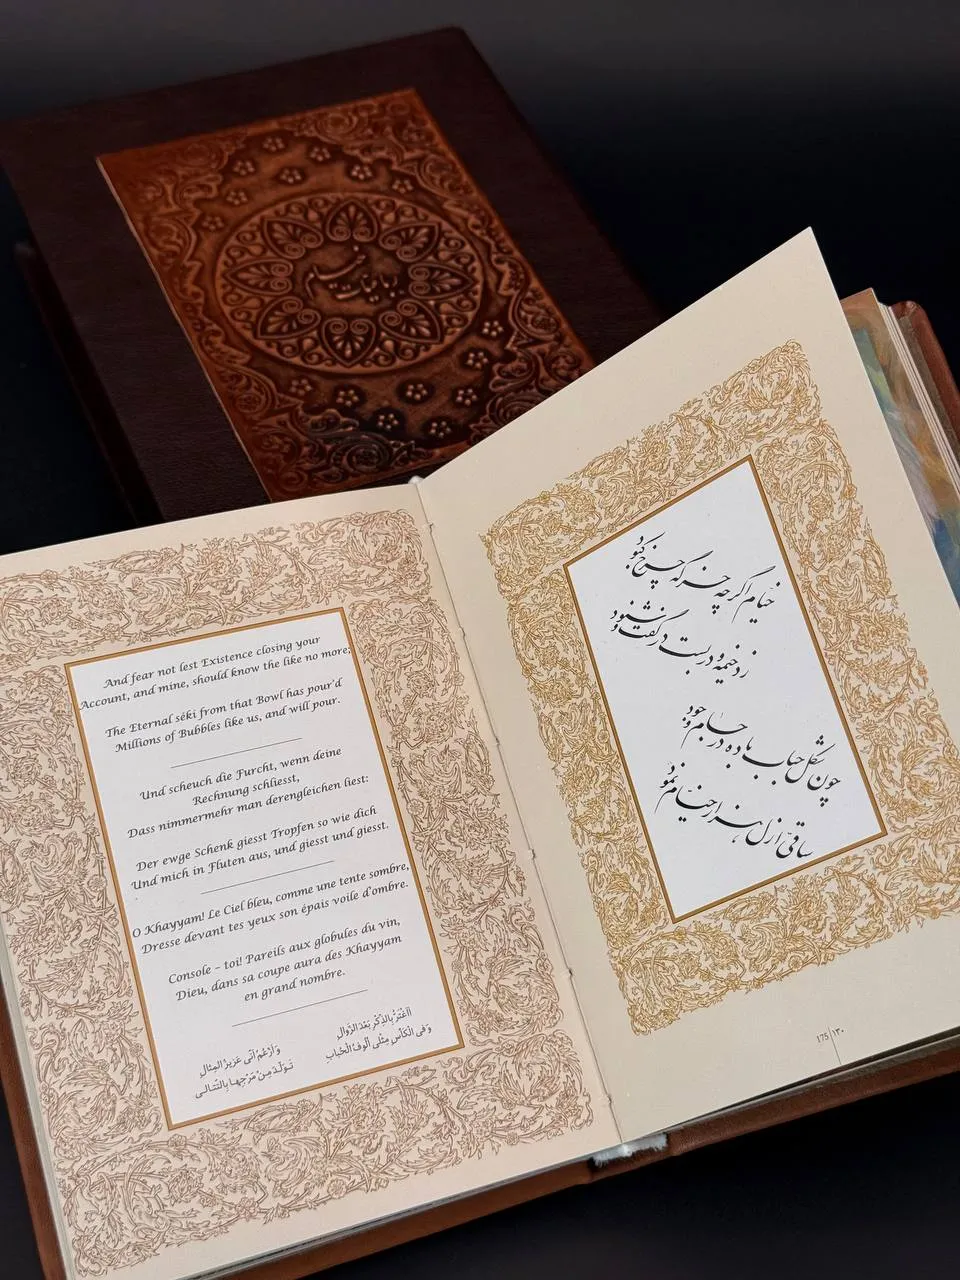 رباعیات خیام
And fear not lest Existence closing your
Account, and mine, should know the like no more;
The Eternal séki from that Bowl has pour'd
Millions of Bubbles like us, and will pour.
Und scheuch die Furcht, wenn deine
Rechnung schliesst,
Dass nimmermehr man derengleichen liest:
Der ewge Schenk giesst Tropfen so wie dich
Und mich in Fluten aus, und giesst und giesst.
O Khayyam! Le Ciel bleu, comme une tente sombre,
Dresse devant tes yeux son épais voile d'ombre.
Console – toi! Pareils aux globules du vin,
Dieu, dans sa coupe aura des Khayyam
en grand nombre.
أأغتر بالذكر بعد الزوال
وأزعم أني عزيز المثال
وفي الكأس مثلي ألوف الحباب
تولد من مزجها بالتتالي
خیام اگرچه خرگه چرخ کبود
زد خیمه و دربست در گفت و شنود
چون شکل حباب باده در جام وجود
ساقی ازل هزار خیام نمود
175 | ١٣٠